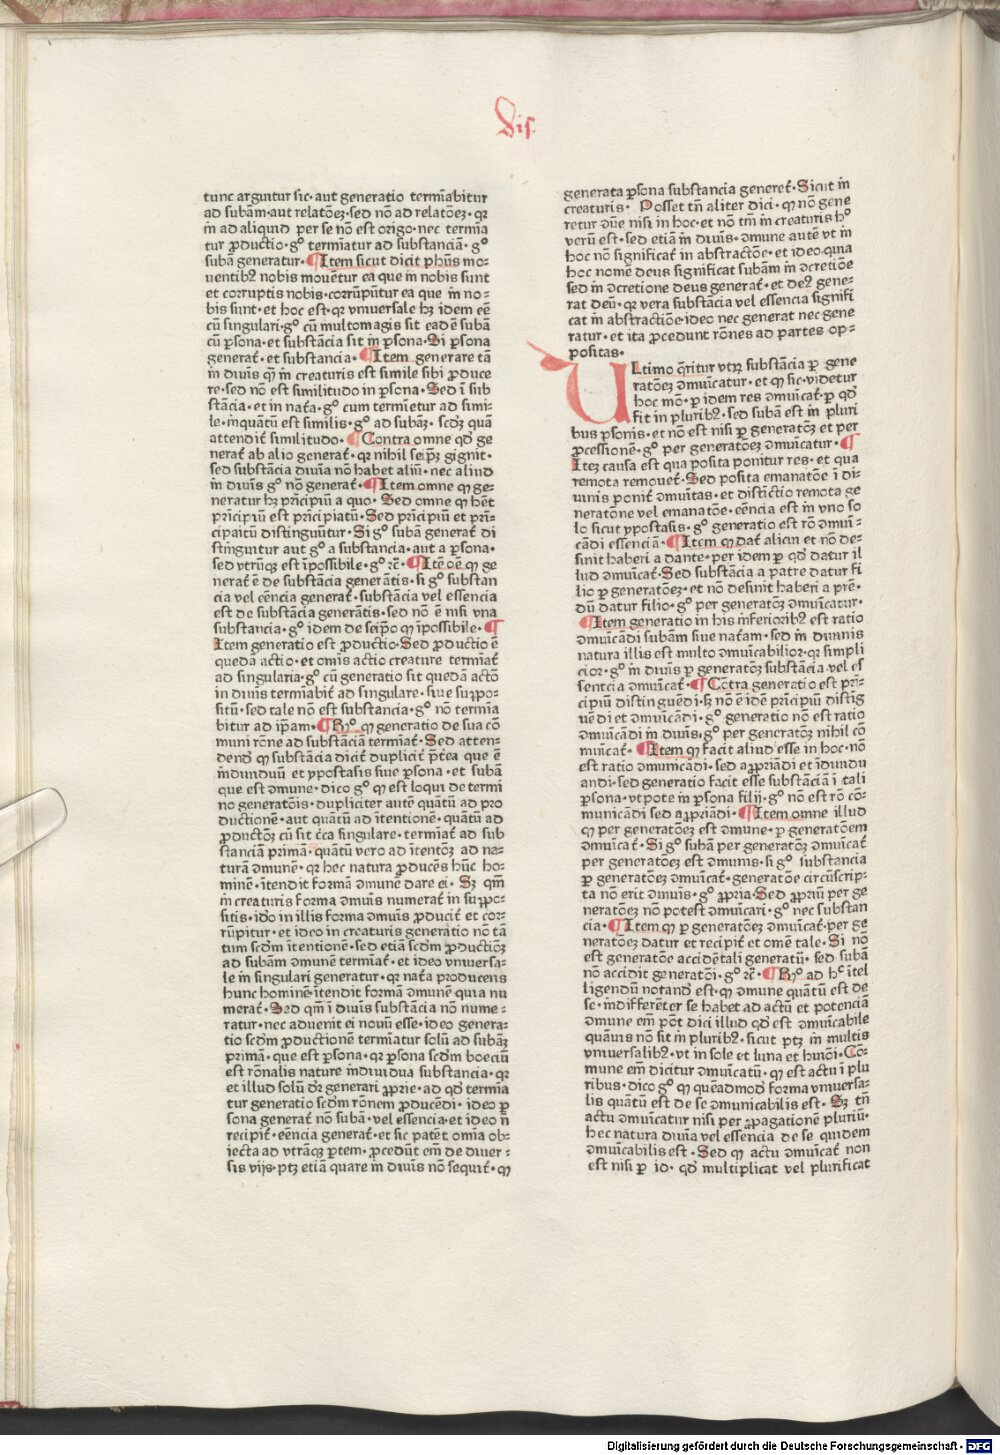 Dis
tunc arguitur sic· aut generatio termīabitur
ad subām·aut relatōeꝫ·sed nō ad relatōeꝫ·qꝛ
īn ad aliquid per se nō est origo·nec termīa
tur ꝓductio·gº termīatur ad substanciā·gº
subā generatur·¶Item sicut dicit phūs mo⸗
uentibꝰ nobis mouētur ea que in nobis sunt
et corruptis nobis·corrūpūtur ea que in no⸗
bis sunt·et hoc est·qꝛ vniuersale hꝫ idem eē
cū singulari·gº cū multomagis sit eadē subā
cū ꝑsona·et substācia sit in ꝑsona·Si ꝑsona
generat̄·et substancia·¶Item generare tā
in diuīs qȝ in creaturis est simile sibi ꝓduce
re·sed nō est similitudo in ꝑsona·Sed ī sub
stācia·et in nat̄a·gº cum termīetur ad simi⸗
le·inquātū est similis·gº ad subāꝫ·scdꝫ quā
attendit̄ similitudo·¶Contra omne qd̄ ge
nerat̄ ab alio generat̄·qꝛ nihil seipꝫ gignit·
sed substācia diuīa nō habet aliū·nec aliud
in diuīs gº nō generat̄·¶Item omne qȝ ge⸗
neratur hꝫ prīcipiū a quo·Sed omne qȝ hēt
prīcipiū est prīcipiatū·Sed prīcipiū et prī⸗
cipaitū distinguūtur·Si gº subā generat̄ di
stinguitur aut gº a substancia·aut a ꝑsona·
sed vtrūqȝ est īpossibile·gº ꝛc̄·¶Itē oē qȝ ge
nerat̄ ē de substācia generātis·si gº substan
cia vel eēncia generat̄·substācia vel essencia
est de substācia generātis·sed nō ē nisi vna
substancia·gº idem de seipo qȝ īpossibile·¶
Item generatio est ꝓductio·Sed ꝓductio ē
quedā actio·et omis actio creature termīat̄
ad singularia·gº cū generatio sit quedā actō
in diuīs termīabit̄ ad singulare·siue suppo⸗
sitū·sed tale nō est substancia·gº nō termīa
bitur ad ip̄am·¶Rº· qȝ generatio de sua cō
muni rōne ad substāciā termīat̄·Sed atten⸗
dendꝰ qȝ substācia dicit̄ duplicit̄ ꝑt̄ea que ē
indiuiduū et ypostasis siue ꝑsona·et subā
que est ꝯmune·dico gº qȝ est loqui de termi
no generatōis·dupliciter autē quātū ad pro
ductionē·aut quātū ad ītentionē·quātū ad
ꝓductōꝫ cū sit c̄ca singulare·termīat̄ ad sub
stanciā primā·quātū vero ad ītentōꝫ ad na⸗
turā ꝯmunē·qꝛ hec natura ꝓducēs hūc ho⸗
minē·ītendit formā ꝯmunē dare ei·Sꝫ qm̄
in creaturis forma ꝯmuīs numerat̄ in suppo⸗
sitis·ido in illis forma ꝯmuīs ꝓducit̄ et cor⸗
rūpitur·et ideo in creaturis generatio nō tā
tum scdm̄ ītentionē·sed etiā scdm̄ ꝓductiōꝫ
ad subām ꝯmunē termīat̄·et ideo vniuersa⸗
le in singulari generatur·qꝛ nat̄a producens
hunc hominē·ītendit formā ꝯmunē quia nu
merat̄·Sed qm̄ ī diuīs substācia nō nume⸗
ratur·nec aduenit ei nouū esse·ideo genera⸗
tio scdm̄ ꝓductionē termīatur solū ad subāꝫ
primā·que est ꝑsona·qꝛ ꝑsona scdm̄ boeciū
est rōnalis nature indiuidua substancia·qꝛ
et illud solū dr̄ generari ꝓprie·ad qd̄ termīa
tur generatio scdm̄ rōnem ꝓducēdi·ideo ꝑ
sona generat̄ nō subā·vel essencia·et ideo n̄
recipit̄·eēncia generat̄·et sic patēt omīa ob⸗
iecta ad vtrāqȝ ꝑtem·ꝓcedūt em̄ de diuer⸗
sis vijs·ptꝫ etiā quare in diuīs nō sequit̄·qȝ
generata ꝑsona substancia generet̄·Sicut in
creaturis· Posset tn̄ aliter dici·qȝ nō gene
retur ꝯūe nisi in hoc·et nō tm̄ in creaturis hº
verū est·sed etiā in diuīs·ꝯmune autē vt in
hoc nō significat̄ in abstractōe·et ideo quia
hoc nomē deus significat subām in ꝯcretiōe
sed in ꝯcretione deus generat̄·et deꝰ gene⸗
rat deū·qꝛ vera substācia vel essencia signifi
cat̄ in abstractiōe·ideo nec generat nec gene
ratur·et ita ꝓcedunt rōnes ad partes op⸗
positas·
ULtimo q̄ritur vtꝝ substācia ꝑ gene
ratōeꝫ ꝯmuīcatur·et qȝ sic·videtur
hoc mō·ꝑ idem res ꝯmuīcat̄·ꝑ qd̄
fit in pluribꝰ·sed subā est in pluri
bus ꝑsonis·et nō est nisi ꝑ generatōꝫ et per
ꝓcessionē·gº per generatōeꝫ ꝯmuīcatur·¶
Iteꝫ causa est qua posita ponitur res·et qua
remota remouet̄·Sed posita emanatōe ī di⸗
uinis ponit̄ ꝯmuītas·et distīctio remota ge
neratōne vel emanatōe·eēncia est in vno so
lo sicut ypostasis·gº generatio est rō ꝯmuī⸗
cādi essenciā·¶Item qȝ dat̄ alicui et nō de⸗
sinit haberi a dante·per idem ꝑ qd̄ datur il
lud ꝯmuīcat̄·Sed substācia a patre datur fi
lio ꝑ generatōeꝫ·et nō desinit haberi a prē·
dū datur filio·gº per generatōꝫ ꝯmuīcatur·
¶Item generatio in his inferioribꝰ est ratio
ꝯmuīcādi subām siue nat̄am·sed in diuinis
natura illis est multo ꝯmuīcabilior·qꝛ simpli
cior·gº in diuīs ꝑ generatōꝫ substācia vel es
sentcia ꝯmuīcat̄·¶Cōtra generatio est prī⸗
cipiū distinguēdi·sꝫ nō ē idē prīcipiū distig
uēdi et ꝯmuīcādi·gº generatio nō est ratio
ꝯmuīcādi in diuīs·gº per generatōꝫ nihil cō
muīcat̄·¶Item qȝ facit aliud esse in hoc·nō
est ratio ꝯmuīcādi·sed appriādi et īdiuidu
andi·sed generatio facit esse substāciā ī tali
ꝑsona·vtpote in ꝑsona filij·gº nō est rō cō⸗
municādi sed appriādi·¶Item omne illud
qȝ per generatōeꝫ est ꝯmune·ꝑ generatōem
ꝯmuīcat̄·Si gº subā per generatōꝫ ꝯmuīcat̄
per generatōeꝫ est ꝯmunis·si gº substancia
ꝑ generatōeꝫ ꝯmuīcat̄·generatōe circūscrip⸗
ta nō erit ꝯmuīs·gº ꝓpria·Sed ꝓpriū per ge
neratōeꝫ nō potest ꝯmuīcari·gº nec substan
cia·¶Item qȝ ꝑ generatōeꝫ ꝯmuīcat̄·per ge
neratōeꝫ datur et recipit̄ et omē tale·Si nō
est generatōe accidētali generatū·sed subā
nō accidit generatōi·gº ꝛc̄·¶Rº ad hᶜ ītel
ligendū notand̄ est·qȝ ꝯmune quātū est de
se·indifferēter se habet ad actū et potenciā
ꝯmune em̄ pōt dici illud qd̄ est ꝯmuīcabile
quāuis nō sit in pluribꝰ·sicut ptꝫ in multis
vniuersalibꝰ·vt in sole et luna et hmōi·Cō⸗
mune em̄ dicitur ꝯmuīcatū·qȝ est actu ī plu
ribus·dico gº qȝ quēadmod̄ forma vniuersa⸗
lis quātū est de se ꝯmunicabilis est·Sꝫ tn̄
actu ꝯmuīcatur nisi per ꝓpagationē pluriū·
hec natura diuīa vel essencia de se quidem
ꝯmuīcabilis est·Sed qȝ actu ꝯmuīcat̄ non
est nisi ꝑ id·qd̄ multiplicat vel plurificat
Digitalisierung gefördert durch die Deutsche Forschungsgemeinschaft - DFG